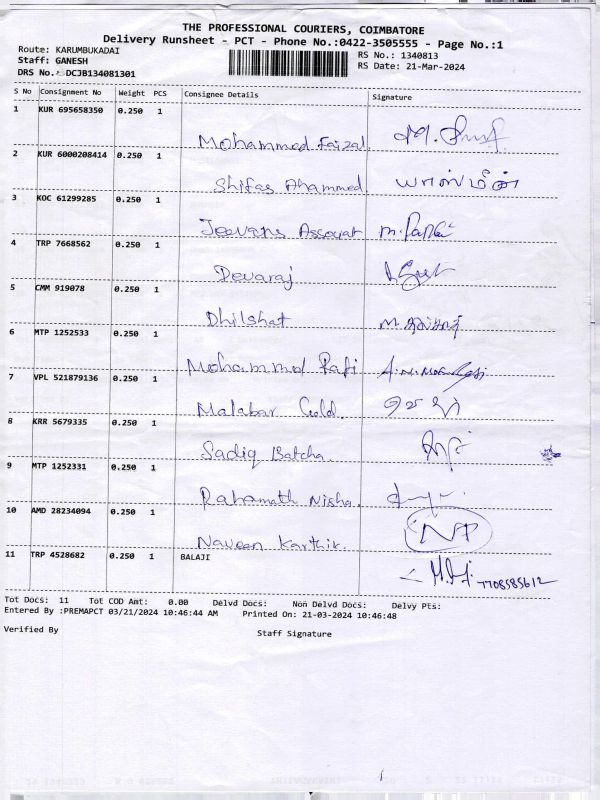 THE PROFESSIONAL COURIERS, COIMBATORE
Delivery Runsheet - PCT - Phone No.:0422-3505555 - Page No.:1
Route: KARUMBUKADAI RS No.: 1340813
Staff: GANESH RS Date: 21-Mar-2024
DRS No.: DCJB134081301
S No Consignment No Weight PCS Consignee Details Signature
1 KUR 695658350 0.250 1
Mohammed Faizal
2 KUR 6000208414 0.250 1
Shifas Ahammed யாஸ்மீன்
3 KOC 61299285 0.250 1
Jeevans Assoyat
4 TRP 7668562 0.250 1
Devaraj
5 CMM 919078 0.250 1
Dhilshat
6 MTP 1252533 0.250 1
Mohammed Rafi
7 VPL 521879136 0.250 1
Malabar Gold.
8 KRR 5679335 0.250 1
Sadiq Batcha
9 MTP 1252331 0.250 1
Rahamath Nisha
10 AMD 28234094 0.250 1
Naveen Karthik. NP
11 TRP 4528682 0.250 1 BALAJI
7708585612
Tot Docs: 11 Tot COD Amt: 0.00 Delvd Docs: Non Delvd Docs: Delvy Pts:
Entered By :PREMAPCT 03/21/2024 10:46:44 AM Printed On: 21-03-2024 10:46:48
Verified By Staff Signature